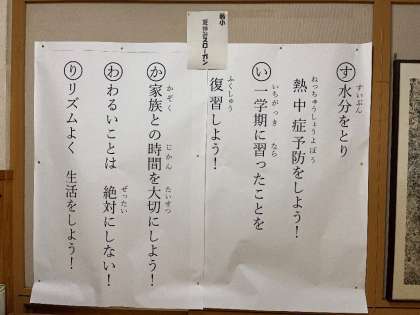 す 水分をとり
すいぶん
熱中症予防をしよう！
ねっちゅうしょうよぼう
い 一学期に習ったことを
いちがっき
なら
復習しよう！
ふくしゅう
か 家族との時間を大切にしよう！
かぞく
じかん
たいせつ
わ わるいことは 絶対にしない！
ぜったい
り リズムよく 生活をしよう！